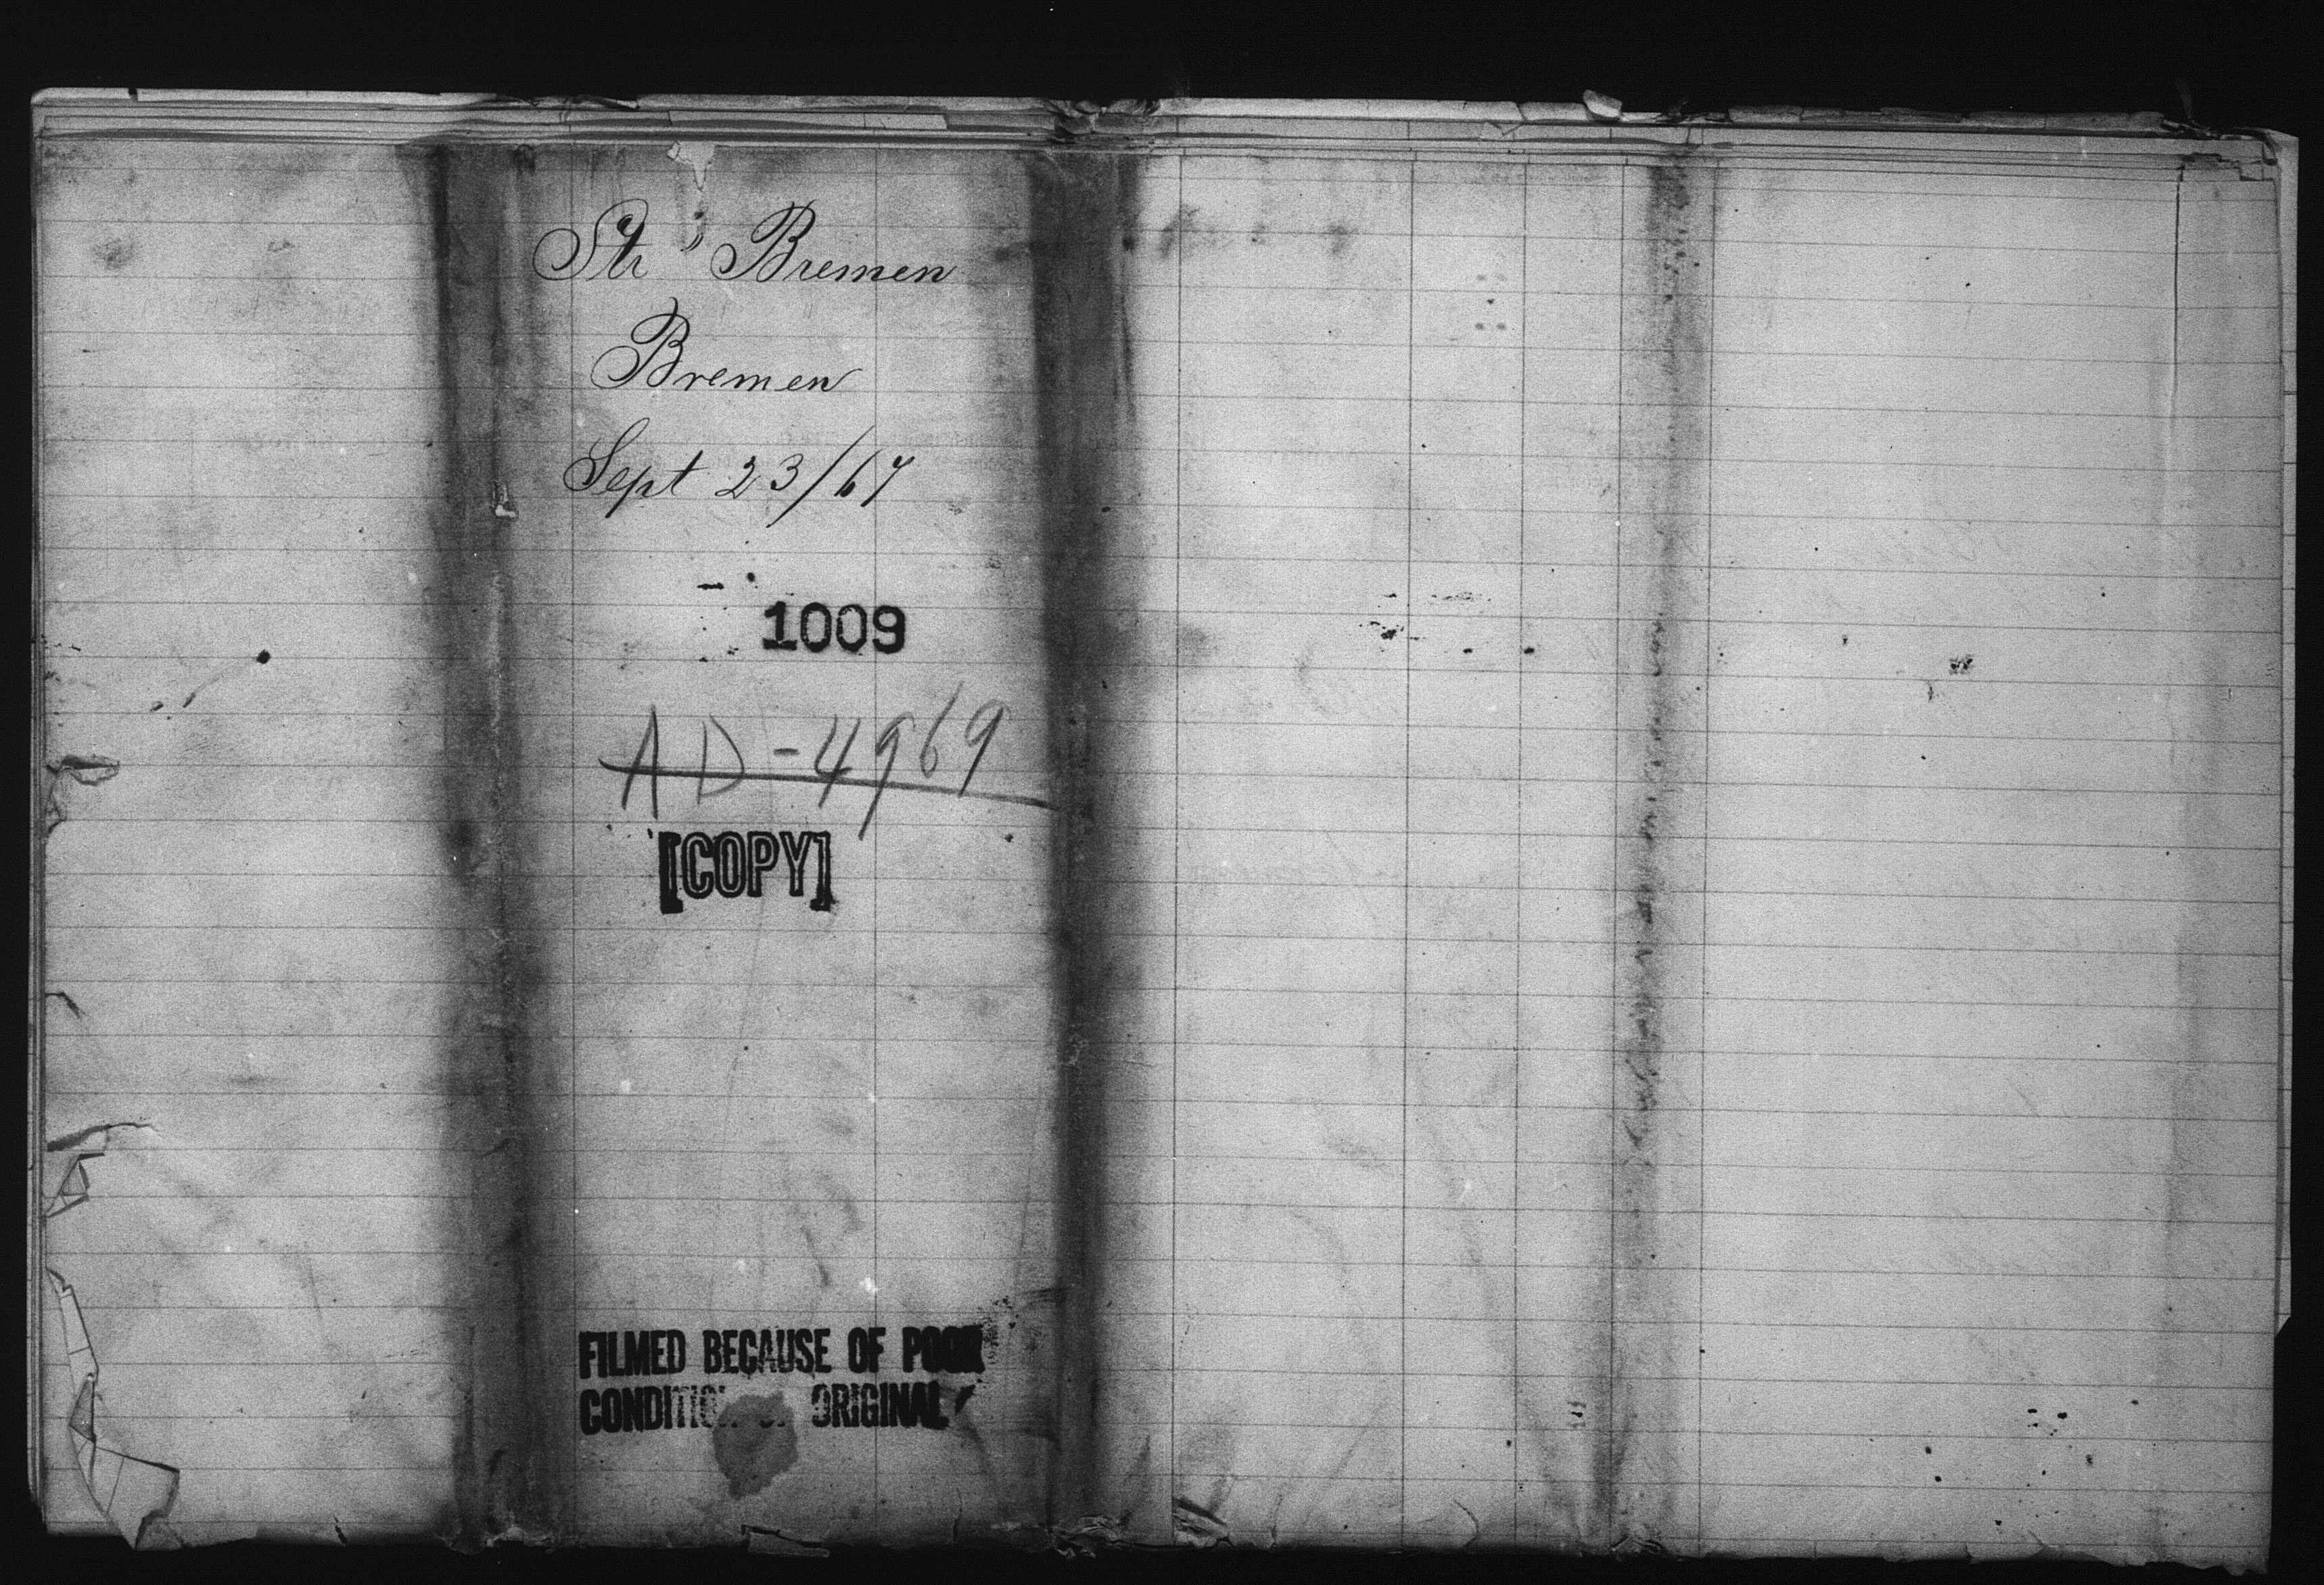 Str Bremen
Bremen
Sept 23/67
1009
AD-4969
[COPY]
FILMED BECAUSE OF POOR
CONDITION OF ORIGINAL